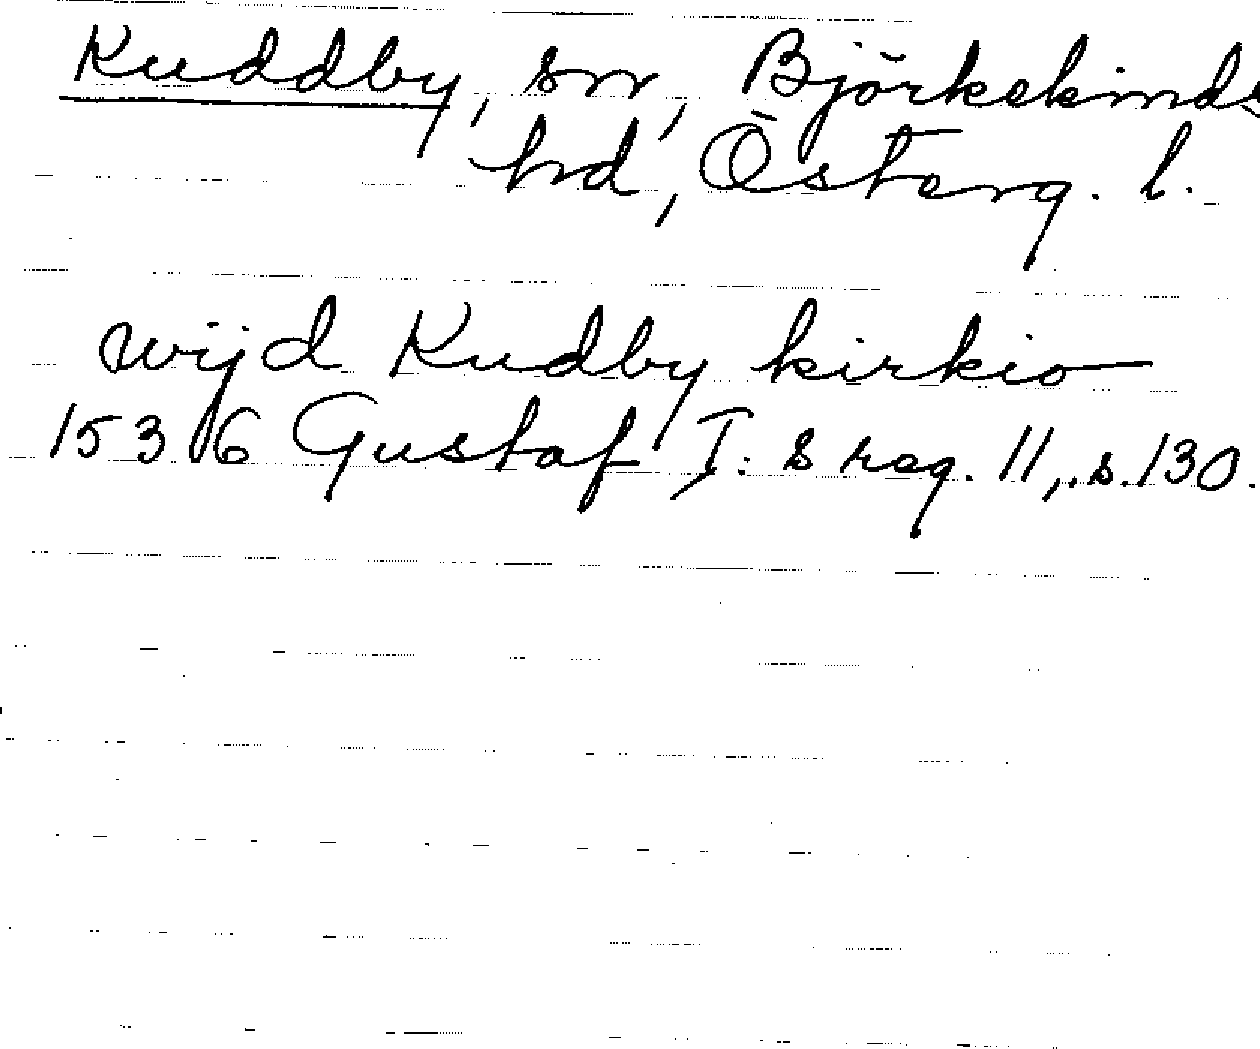 Kuddby, sn, Björkekinds
hd, Österg. l.
wijd Kudby kirkio
1536 Gustaf I:s reg. 11, s. 130.